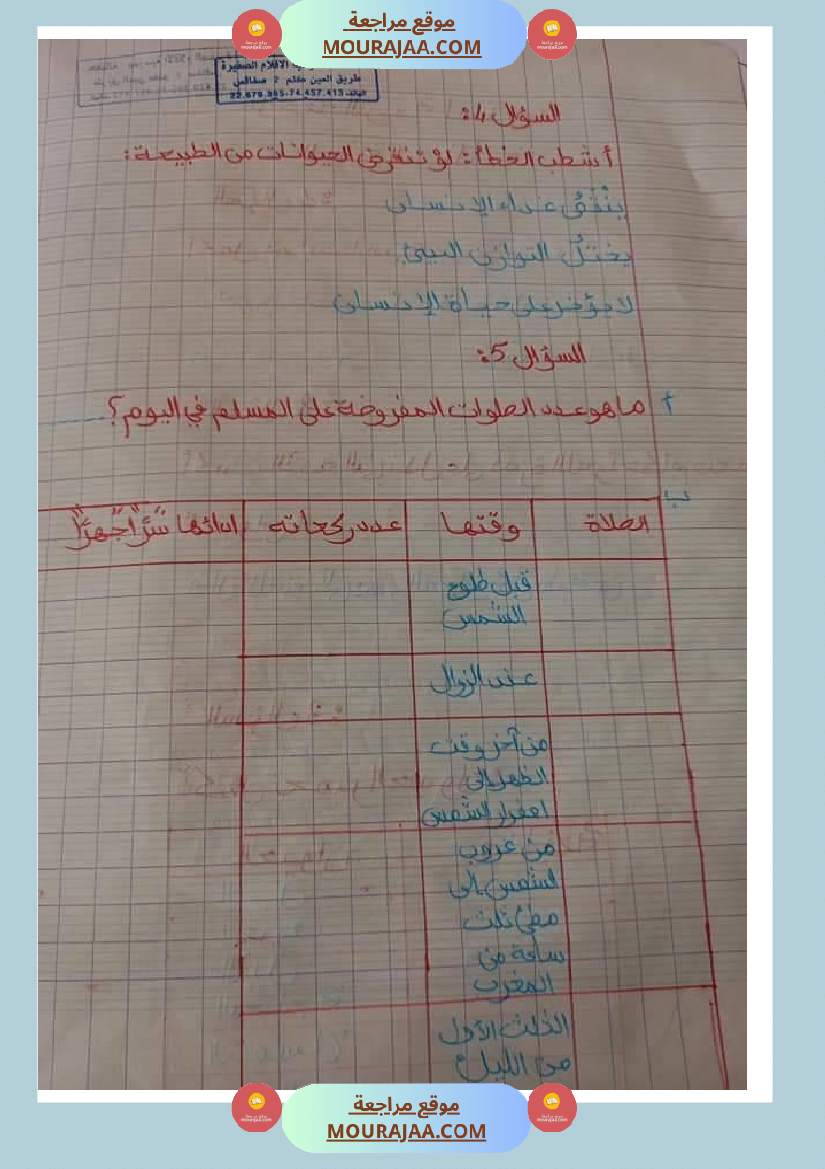 موقع مراجعة
MOURAJAA.COM
طريق العين كلم 2 صفاقس
السؤال 4:
أشطب الخطأ: لو تنقرض الحيوانات من الطبيعة:
ينقص غداء الإنسان
يختل التوازن البيئي
لا يؤثر على حياة الإنسان
السؤال 5:
أ ما هو عدد الصلوات المفروضة على المسلم في اليوم؟
ب
الصلاة وقتها عدد ركعاته ادائها سرّا جهرًا
قبل طلوع
الشمس
عند الزوال
من آخر وقت
الظهر إلى
اصفرار الشمس
من غروب
الشمس إلى
مضي ثلث
ساعة من
المغرب
الثلث الأول
من الليل
موقع مراجعة
MOURAJAA.COM